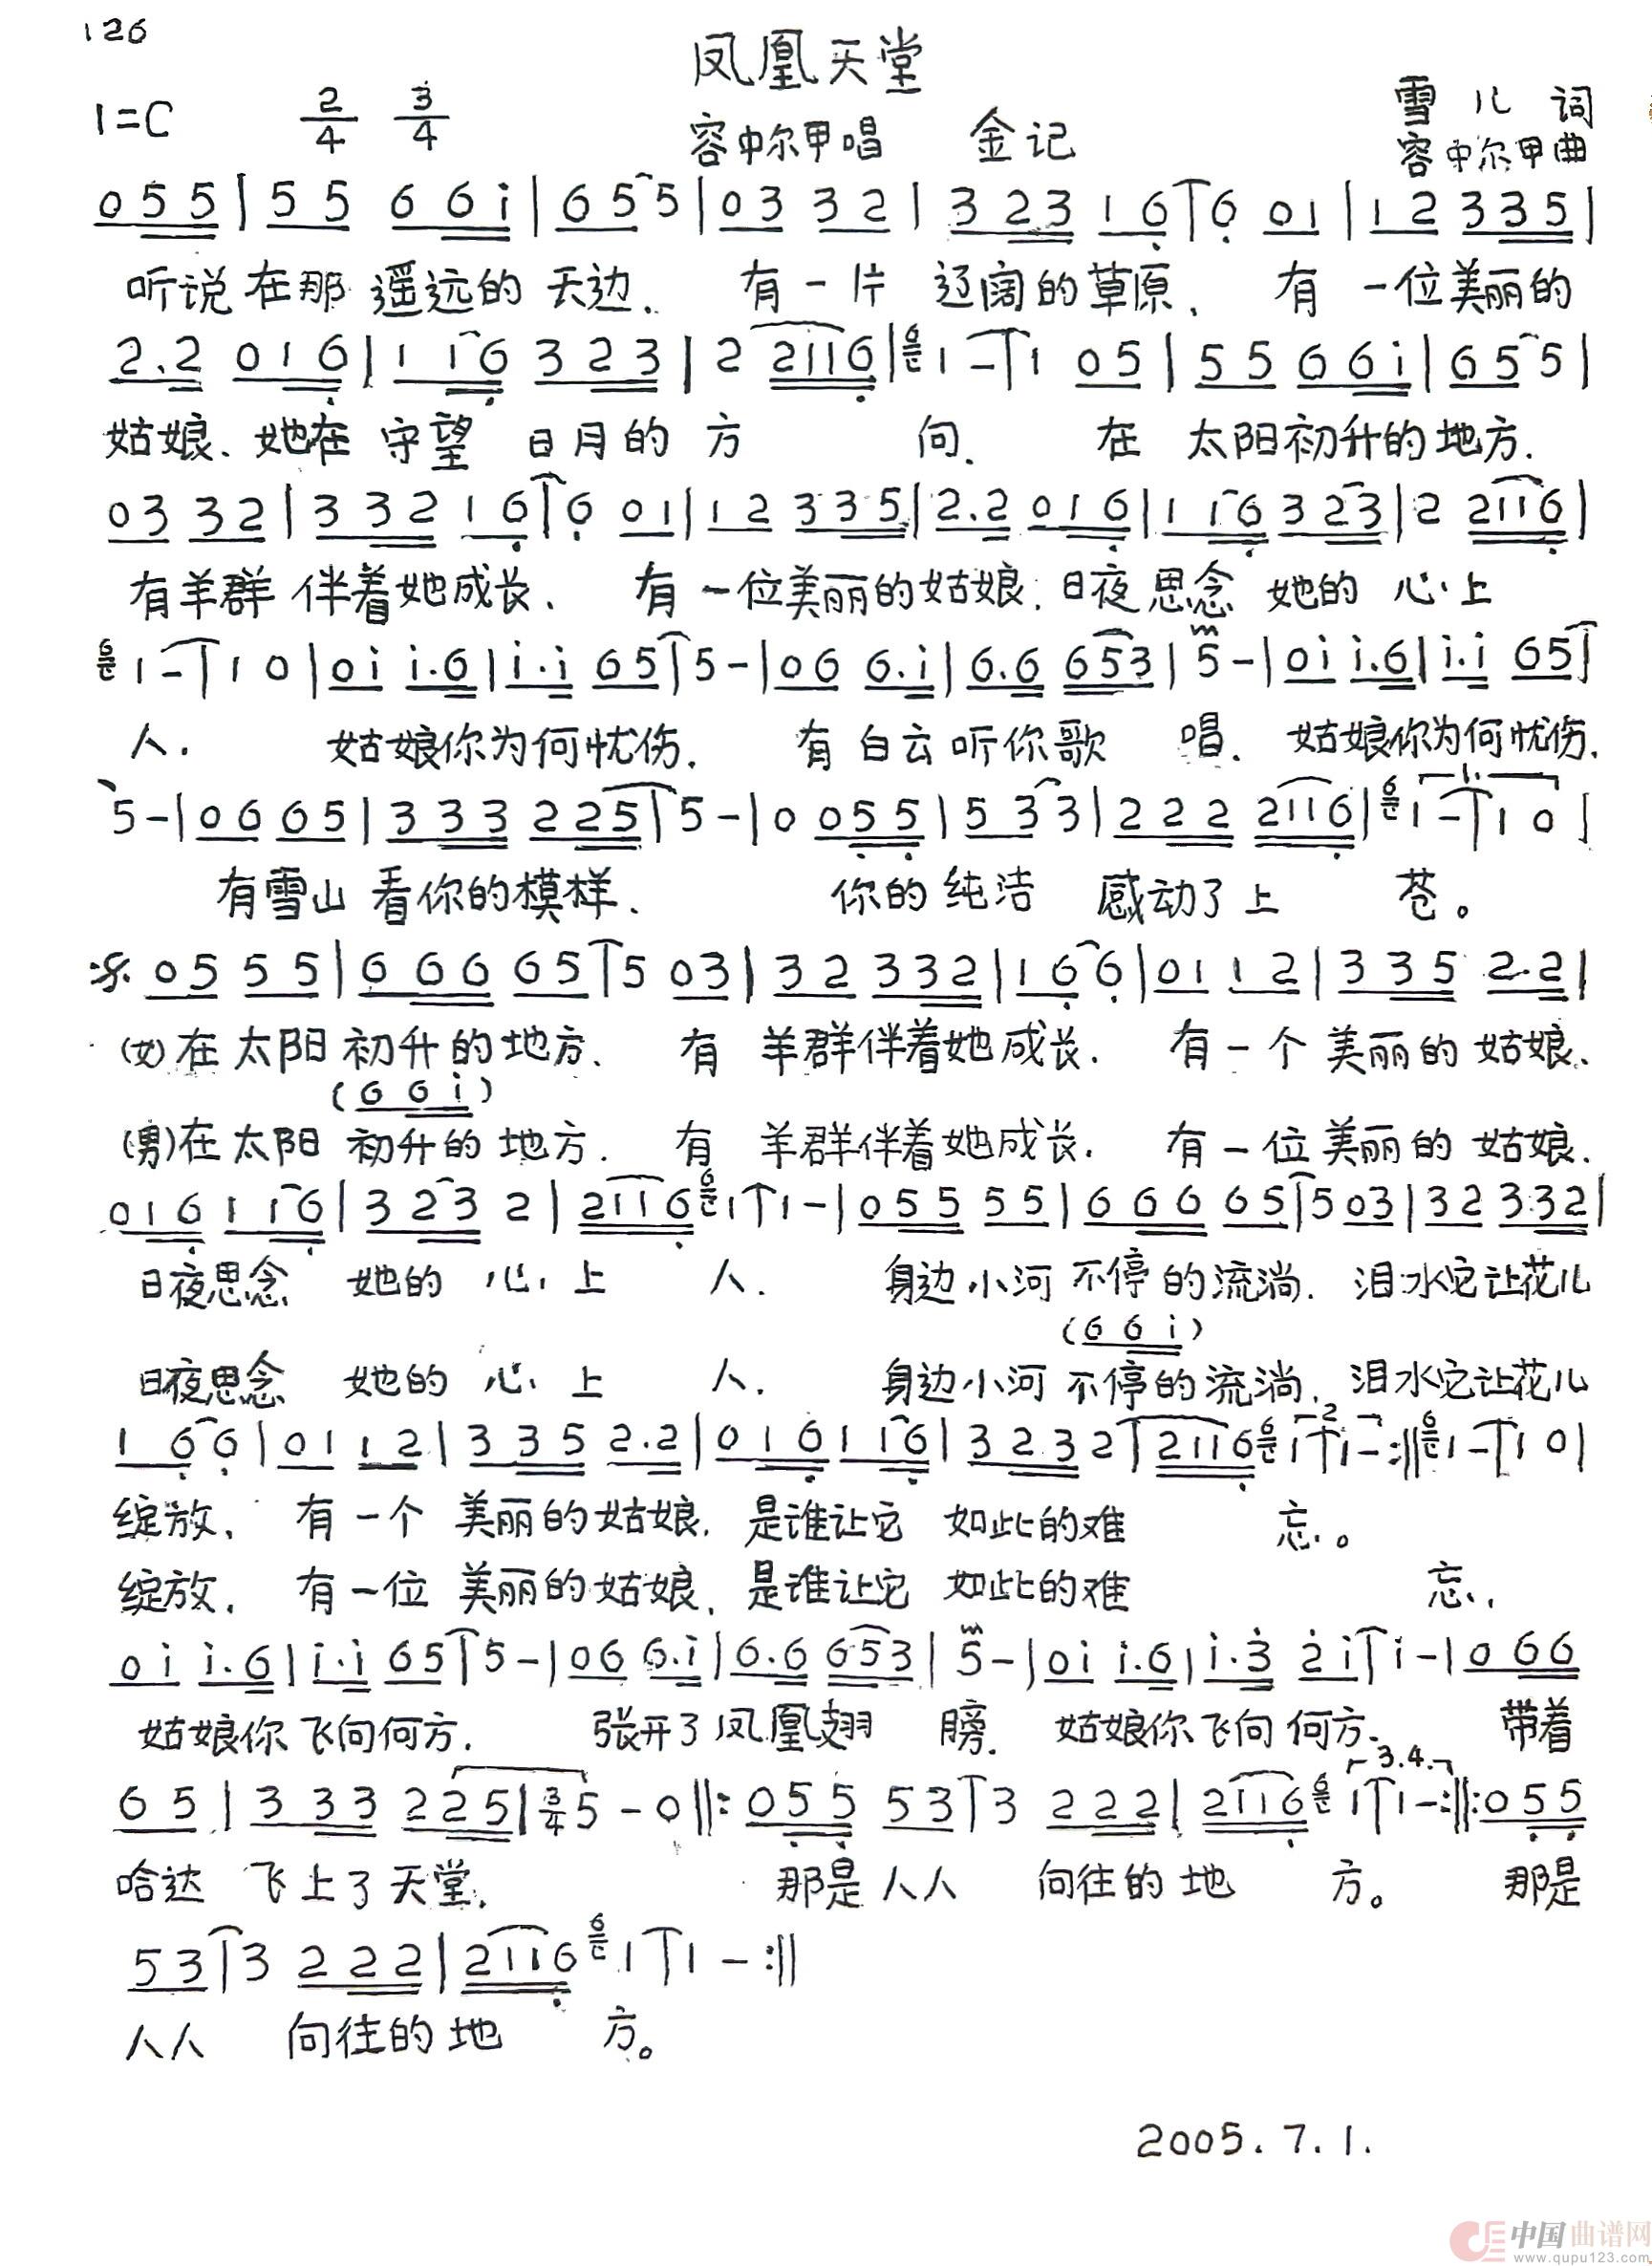 126
凤凰天堂
1=C 2/4 3/4 容中尔甲唱 金记 雪儿 词
容中尔甲曲
0 5 5 | 5 5 6 6 i | 6 5 5 | 0 3 3 2 | 3 2 3 1 6 | 6 0 1 | 1 2 3 3 5 |
听说在那遥远的天边. 有一片辽阔的草原. 有一位美丽的
2.2 0 1 6 | 1 1 6 3 2 3 | 2 2 1 1 6 | 6 1 - | 1 0 5 | 5 5 6 6 i | 6 5 5 |
姑娘. 她在守望日月的方向. 在太阳初升的地方.
0 3 3 2 | 3 3 2 1 6 | 6 0 1 | 1 2 3 3 5 | 2.2 0 1 6 | 1 1 6 3 2 3 | 2 2 1 1 6 |
有羊群伴着她成长. 有一位美丽的姑娘. 日夜思念她的心上
6 1 - | 1 0 | 0 i i.6 | i.i 6 5 | 5 - | 0 6 6.i | 6.6 6 5 3 | 5 - | 0 i i.6 | i.i 6 5 |
人. 姑娘你为何忧伤. 有白云听你歌唱. 姑娘你为何忧伤.
5 - | 0 6 6 5 | 3 3 3 2 2 5 | 5 - | 0 0 5 5 | 5 3 3 | 2 2 2 2 1 1 6 | 6 1. 1 - | 1 0 |
有雪山看你的模样. 你的纯洁感动了上苍。
0 5 5 5 | 6 6 6 6 5 | 5 0 3 | 3 2 3 3 2 | 1 6 6 | 0 1 1 2 | 3 3 5 2.2 |
(女)在太阳初升的地方. 有羊群伴着她成长. 有一个美丽的姑娘.
(6 6 i)
(男)在太阳初升的地方. 有羊群伴着她成长. 有一位美丽的姑娘.
0 1 6 1 1 6 | 3 2 3 2 | 2 1 1 6 6 1 | 1 - | 0 5 5 5 5 | 6 6 6 6 5 | 5 0 3 | 3 2 3 3 2 |
日夜思念她的心上人. 身边小河不停的流淌. 泪水它让花儿
(6 6 i)
日夜思念她的心上人. 身边小河不停的流淌. 泪水它让花儿
1 6 6 | 0 1 1 2 | 3 3 5 2.2 | 0 1 6 1 1 6 | 3 2 3 2 | 2 1 1 6 6 2 1 | 1 - :|| 6 1 - | 1 0 |
绽放. 有一个美丽的姑娘. 是谁让它如此的难忘.。
绽放. 有一位美丽的姑娘. 是谁让它如此的难忘.
0 i i.6 | i.i 6 5 | 5 - | 0 6 6.i | 6.6 6 5 3 | 5 - | 0 i i.6 | i.3 2 i | i - | 0 6 6
姑娘你飞向何方. 张开了凤凰翅膀. 姑娘你飞向何方. 带着
6 5 | 3 3 3 2 2 5 | 3/4 5 - 0 ||: 0 5 5 5 3 | 3 2 2 2 | 2 1 1 6 6 3.4. 1 | 1 - :||: 0 5 5
哈达飞上了天堂. 那是人人向往的地方。 那是
5 3 | 3 2 2 2 | 2 1 1 6 6 1 | 1 - :||
人人向往的地方。
2005.7.1.
中国曲谱网
www.qupu123.com